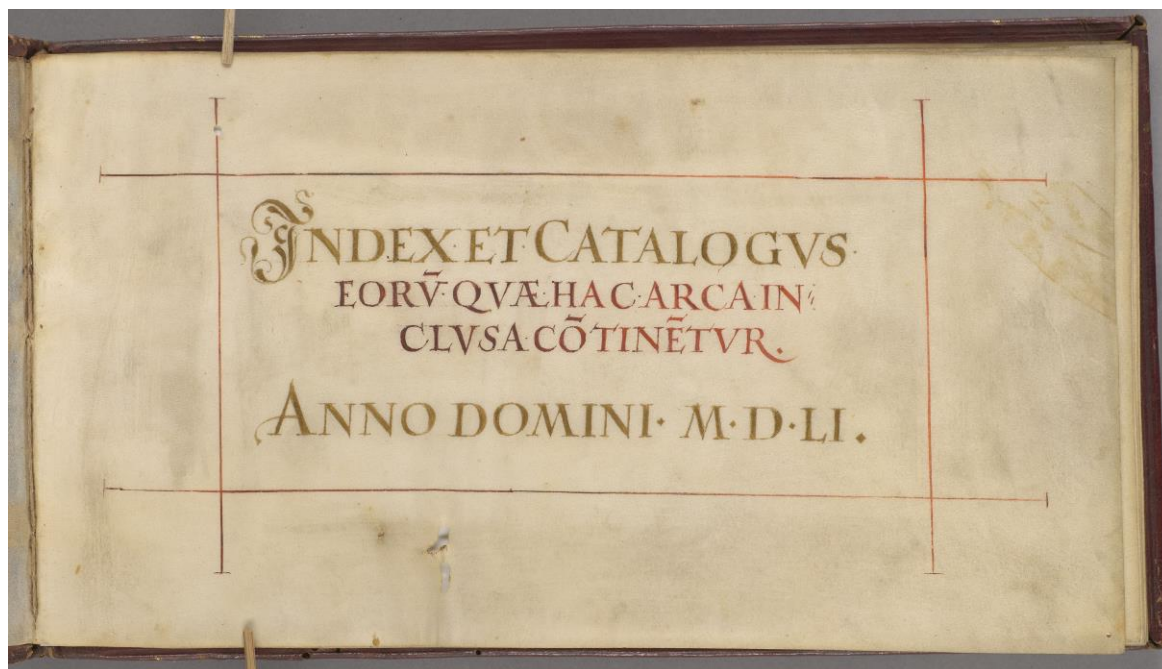 INDEX·ET·CATALOGVS·
EORV̄·QVÆ·HAC·ARCA·IN⸗
CLVSA·CŌTINĒTVR.
ANNO DOMINI· M·D·LI.